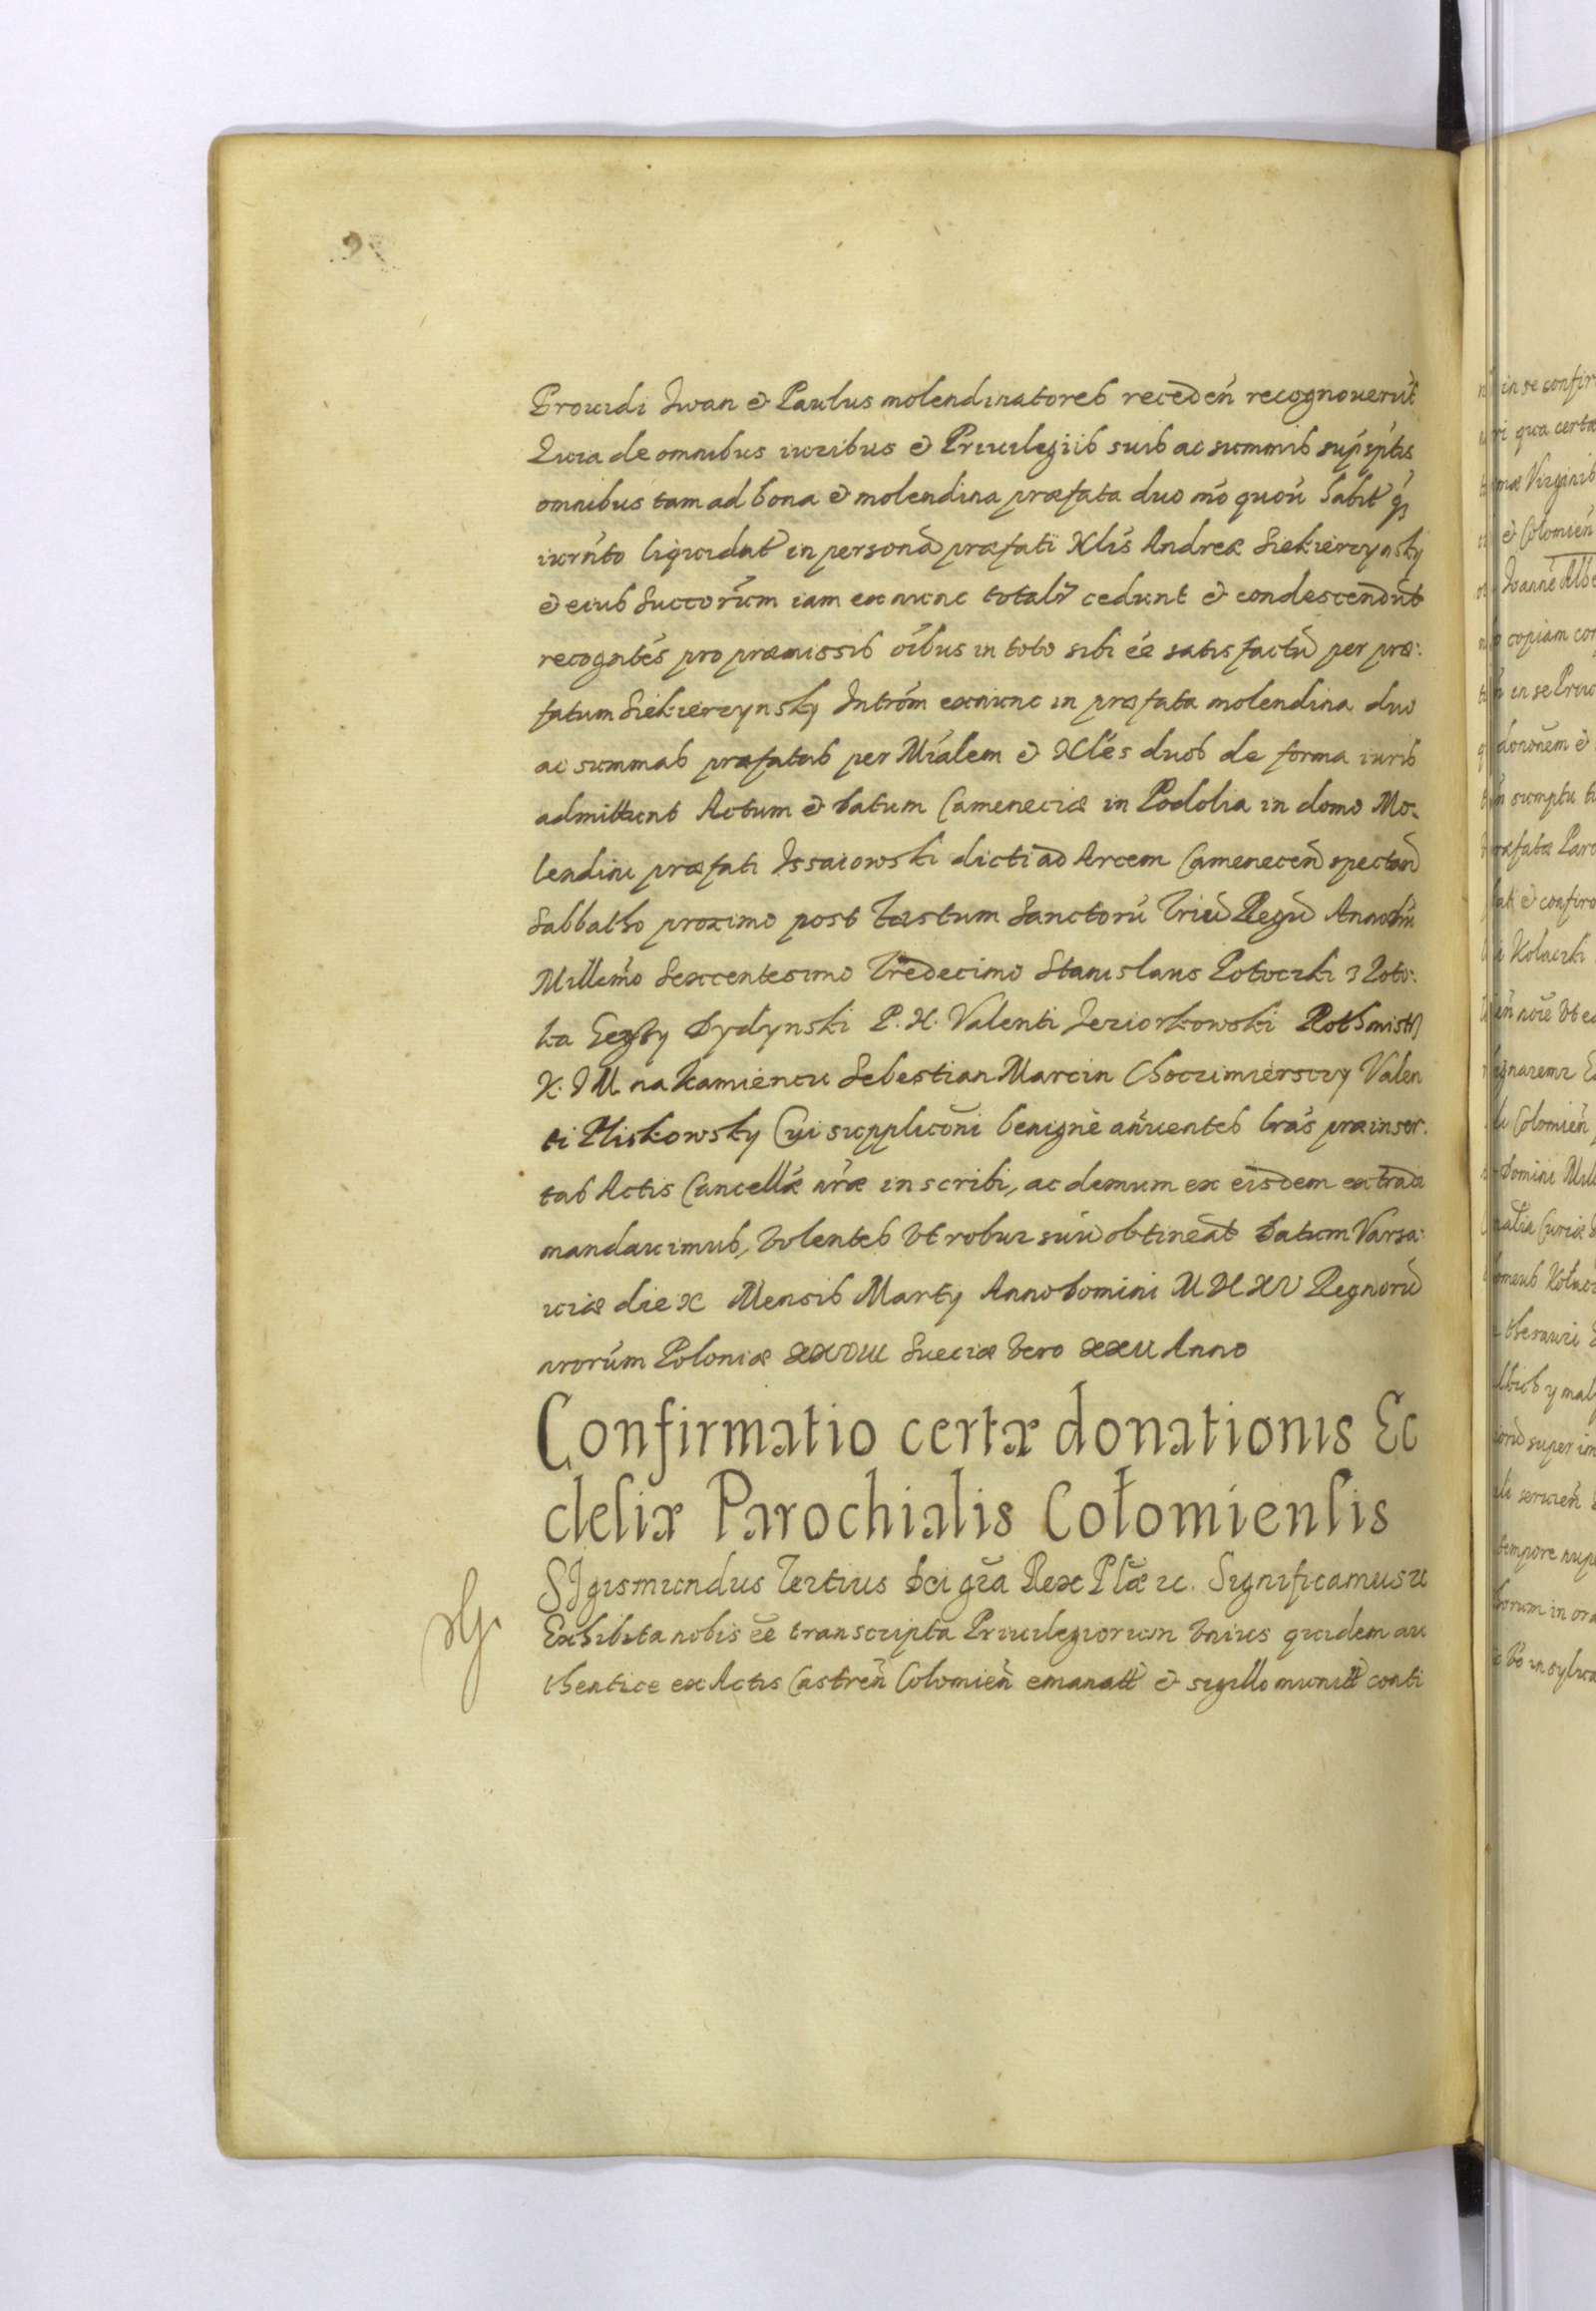 Prouidi Iwan & Paulus molendinatores receden̄ recognouerūt
Quia de omnibus iuribus & Priuilegiis suis ac summis sup̄sptis
omnibus tam ad bona & molendina præfata duo mō quoū habit
iurn̄to liquidat in personā præfati Nlis Andreæ Siekierzynsky
& eius Succorum iam ex nunc totalr cedunt & condescendūt
recogn̄tes pro præmissis oībus in toto sibi ēe satisfactū per præ:
fatum Siekierzynsky Introm̄ exnunc in præfata molendina duo
ac summas præfatas per Mīalem & Nles duos de forma iuris
admittunt Actum & Datum Cameneciæ in Podolia in domo Mo:
lendini præfati Issaiowski dicti ad Arcem Camenecen̄ spectan̄
Sabbatho proximo post Festum Sanctorū Triū Regū Anno Dni
Millemo Sexcentesimo Tredecimo Stanislaus Potoczki z Poto:
ka Gezhy Dydynski P. K. Valenti Jeziorkowski Rothmistrz
K. J M na Kamiencu Sebestian Marcin Choczimierscuy Valen
ti Pliskowsky Cui supplicōni benigne an̄uentes lrās præinser:
tas Actis Cancellæ nræ inscribi, ac demum ex eisdem extradi
mandauimus, Volentes Vt robur suū obtineāt Datum Varsa:
uiæ die X Mensis Marty Anno Domini M DC XV Regnorū
nrorum Poloniæ XXVIII Sueciæ Vero XXII Anno
Confirmatio certæ donationis Ec
clesiæ Parochialis Cołomiensis
SIgismundus Tertius Dei grā Rex Plæ ꝛc. Significamus ꝛc
Exhibita nobis ēe transcripta Priuilegiorum Vnius quidem au
thentice ex Actis Castren̄ Colomien̄ emanatt & sigillo munitt conti